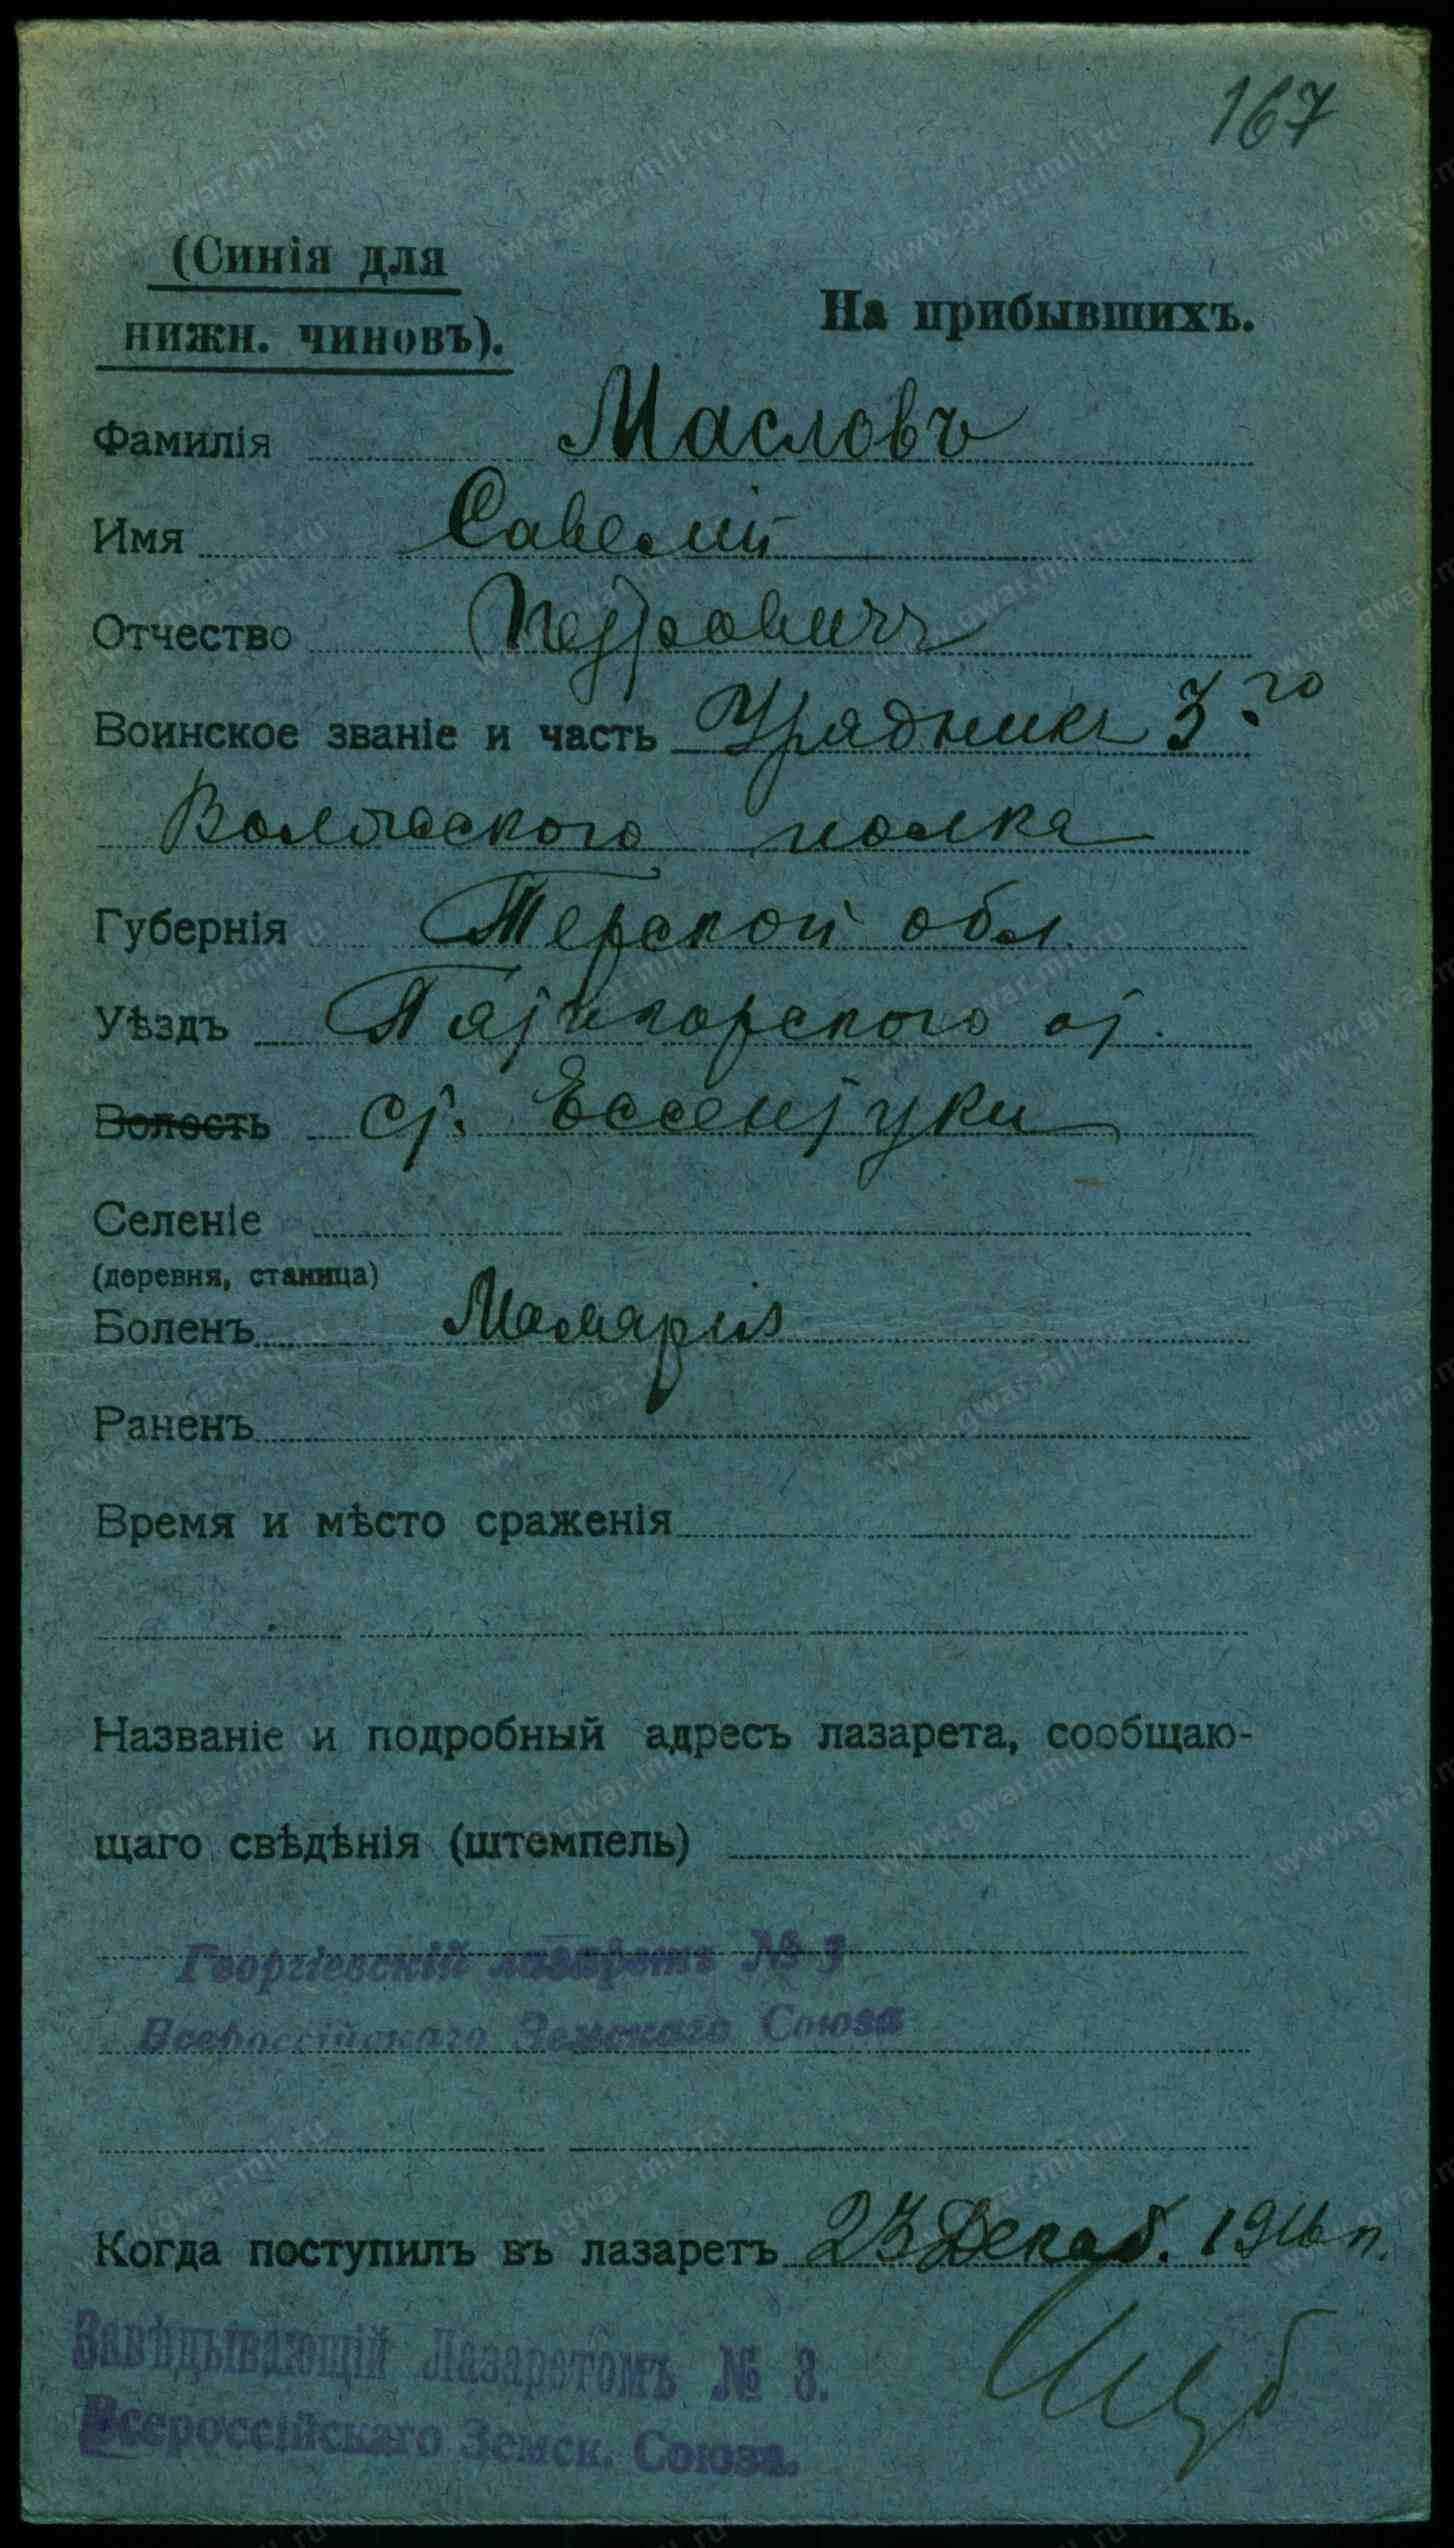 167
(Синія для
нижн. чиновъ).
На прибывшихъ.
Фамилія Масловъ
Имя Савелий
Отчество Петровичъ
Воинское званіе и часть Урядникъ 3.го
Волгского полка
Губернія Терской обл.
Уѣздъ Пятигорского от.
Волость ст. Ессентуки
Селеніе
(деревня, станица)
Боленъ Малярія
Раненъ
Время и мѣсто сраженія
Названіе и подробный адресъ лазарета, сообщаю-
щаго свѣдѣнія (штемпель)
Георгіевскій лазаретъ № 3
Всероссійскаго Земскаго Союза
Когда поступилъ въ лазаретъ 23 Декаб. 1916 г.
Завѣдывающій Лазаретомъ № 3.
Всероссійскаго Земск. Союза.
www.gwar.mil.ru